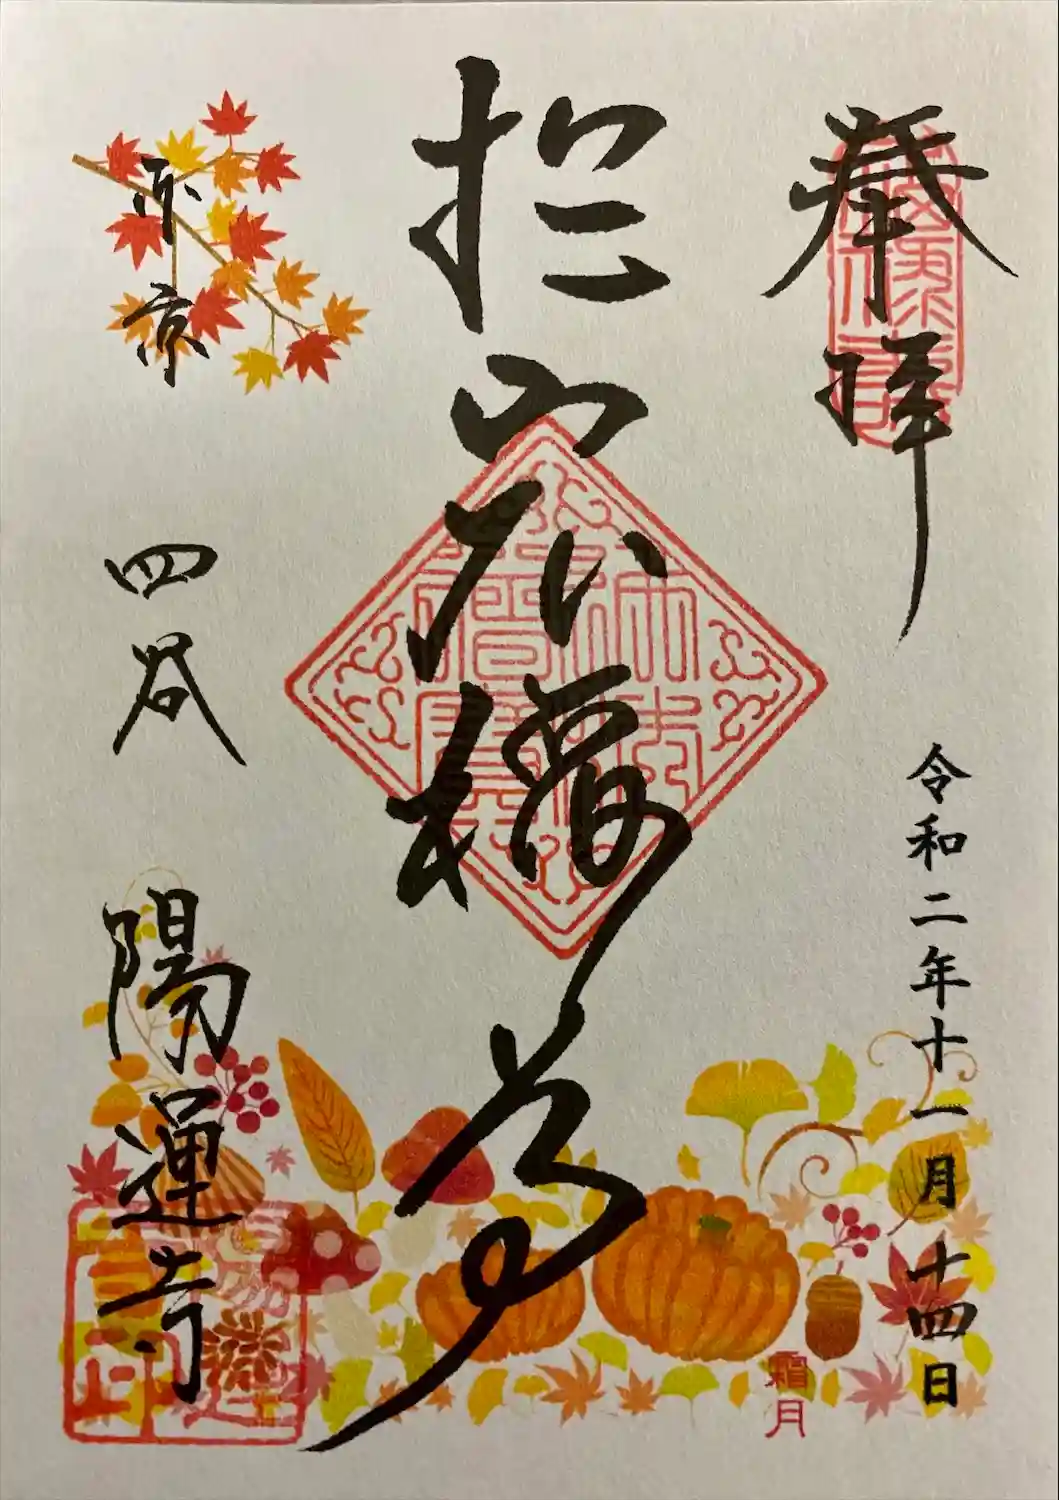 奉拝
令和二年十一月十四日
霜月
於岩稲荷
東京
四谷
陽運寺